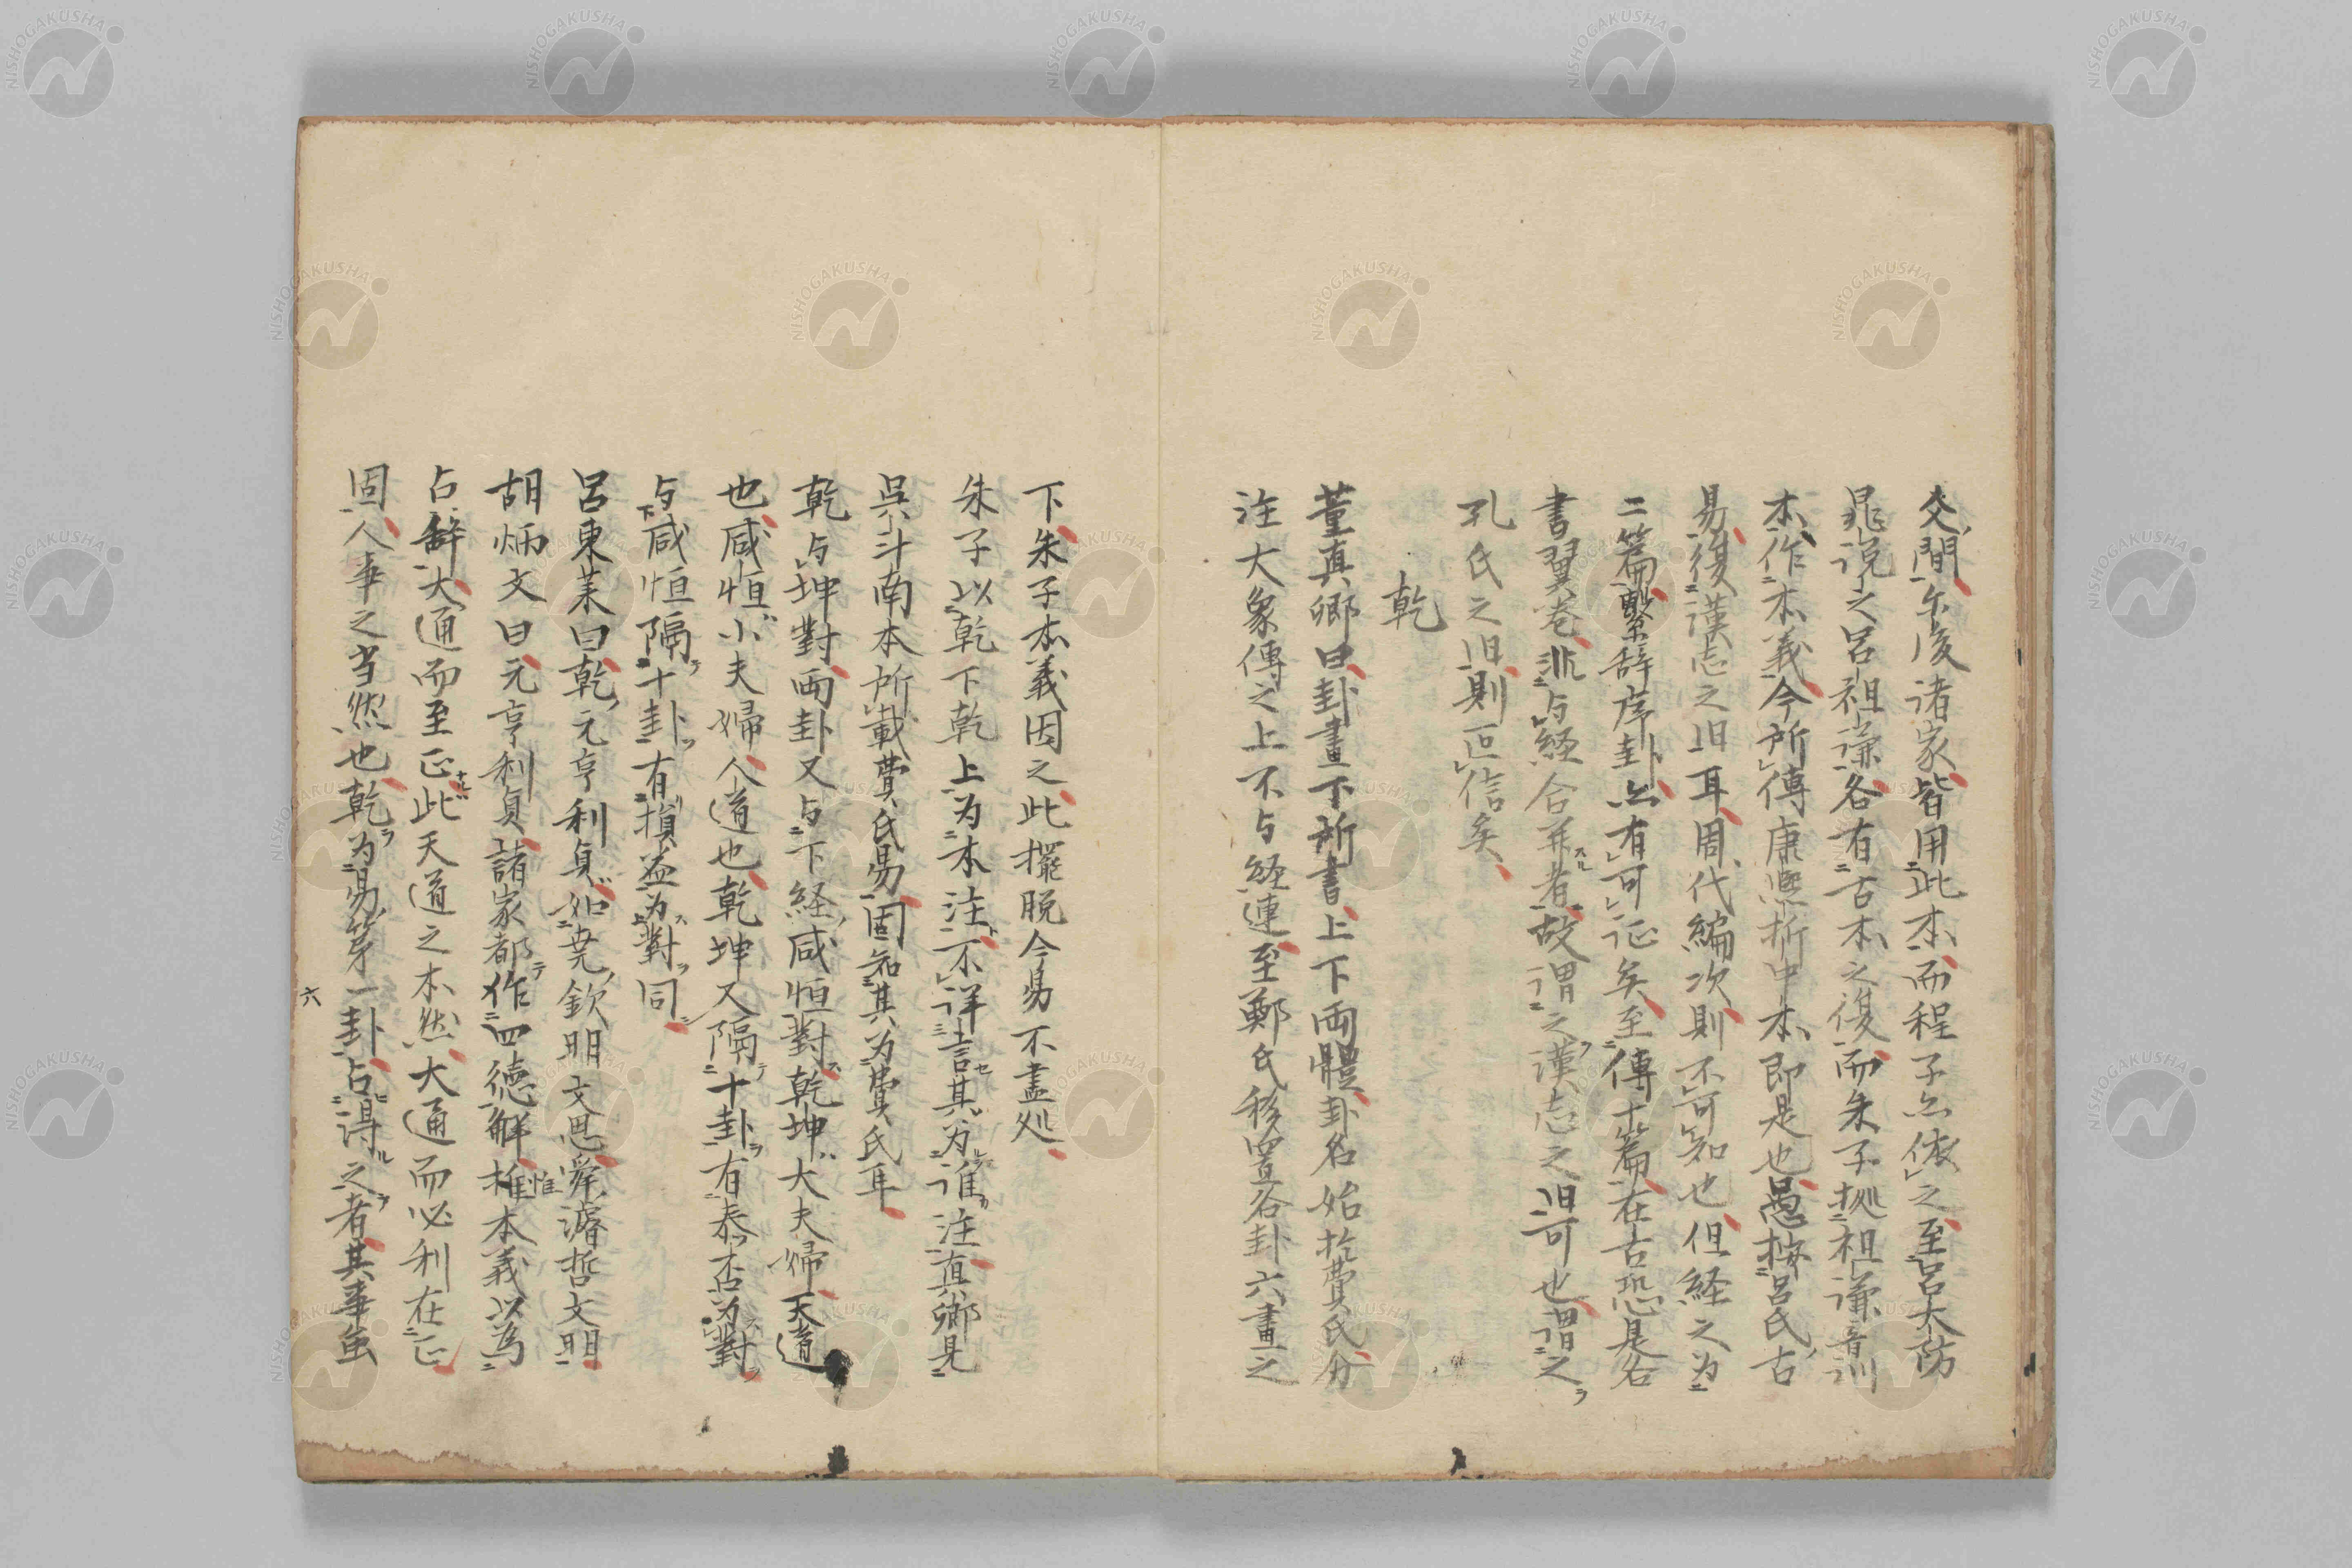 爻間尓後諸家皆用此本而程子亦依之至呂大防
晁説之呂祖謙各有古本之復而朱子拠祖謙音訓
本作本義今所傳康熙折中本即是也愚按呂氏古
易復漢志之旧耳周代編次則不可知也但経之为
二篇繫辞序卦亦有可证矣至傳十篇在古恐是各
書翼巻非与経合并者故謂之漢志之旧可也謂之
孔氏之旧則叵信矣
乾
董真卿曰卦畫下所書上下両體卦名始於費氏分
注大象傳之上不与経連至鄭氏移置各卦六畫之
下朱子本義因之此擺脱今易不盡処
朱子以乾下乾上为本注不详言其为谁注真卿見
呉斗南本所載費氏易固知其为費氏耳
乾与坤對両卦又与下経咸恒對乾坤大夫婦天道
也咸恒小夫婦人道也乾坤又隔十卦有泰否为對
与咸恒隔十卦有損益为對同
呂東莱曰乾元亨利貞如尭欽明文思舜濬哲文明
胡炳文曰元亨利貞諸家都作四徳解惟本義以為
占辞大通而至正此天道之本然大通而必利在正
固人事之当然也乾为易第一卦占得之者其事虽
六
NISHOGAKUSHA